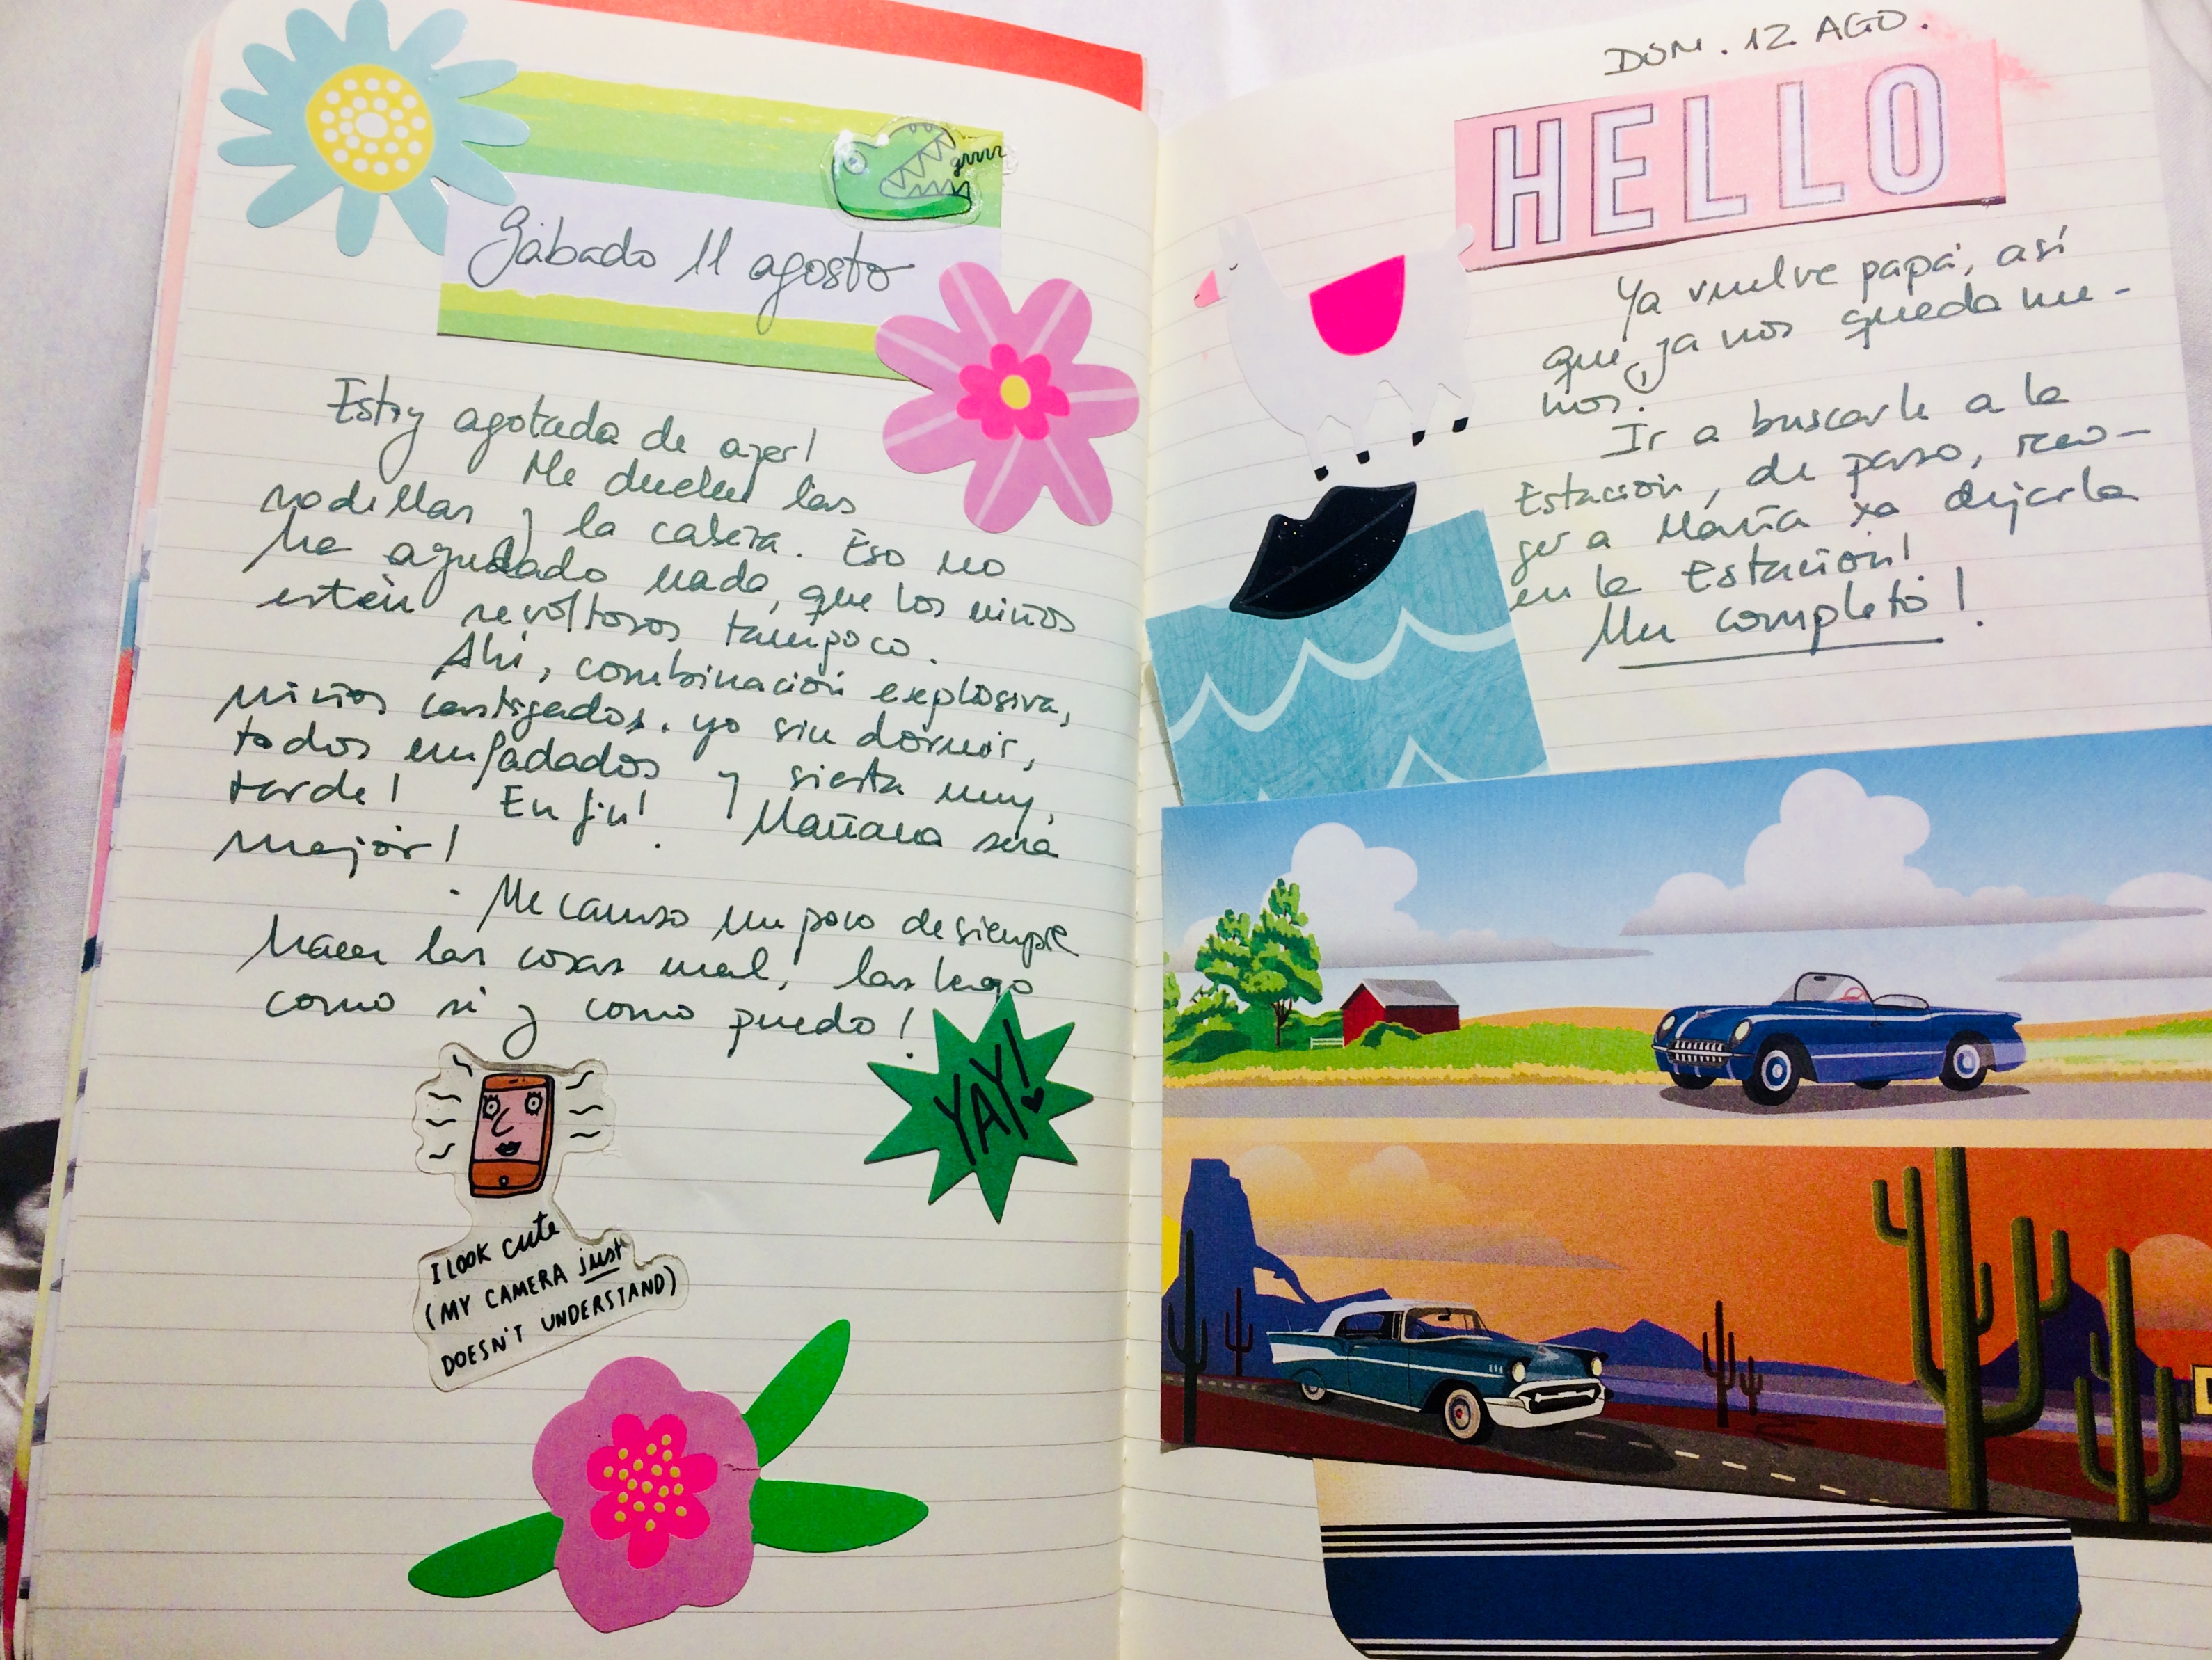 Sábado 11 agosto
grrrr
Estoy agotada de ayer!
Me duelen las
rodillas y la cabeza. Eso no
ha ayudado nada, que los niños
estén revoltosos tampoco.
Ahí, combinación explosiva,
niños castigados. yo sin dormir,
todos enfadados y siesta muy
tarde! En fin! Mañana será
mejor!
- Me canso un poco de siempre
hacer las cosas mal, las hago
como sé y como puedo!
YAY!
I LOOK cute
(MY CAMERA just
DOESN'T UNDERSTAND)
DOM. 12 AGO.
HELLO
Ya vuelve papá, así
que, ya nos queda me-
nos!
Ir a buscarle a la
Estación, de paso, reco-
ger a María xa dejarla
en la Estación!
Un completo!